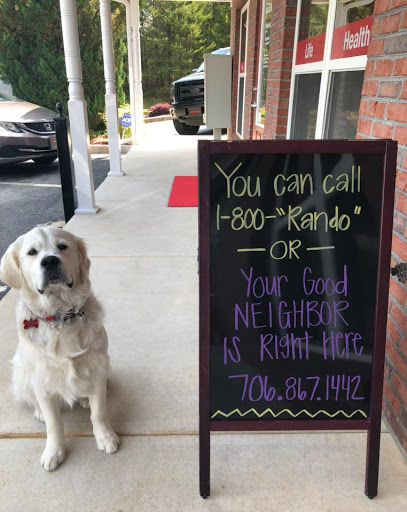 Life
Health
You can call
1-800-"Rando"
— OR —
Your Good
NEIGHBOR
is Right Here
706.867.1442